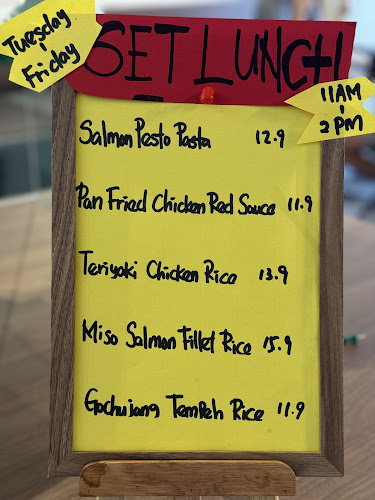 Tuesday
-
Friday
SET LUNCH
11AM
-
2PM
Salmon Pesto Pasta 12.9
Pan Fried Chicken Red Sauce 11.9
Teriyaki Chicken Rice 13.9
Miso Salmon Fillet Rice 15.9
Gochujang Tempeh Rice 11.9